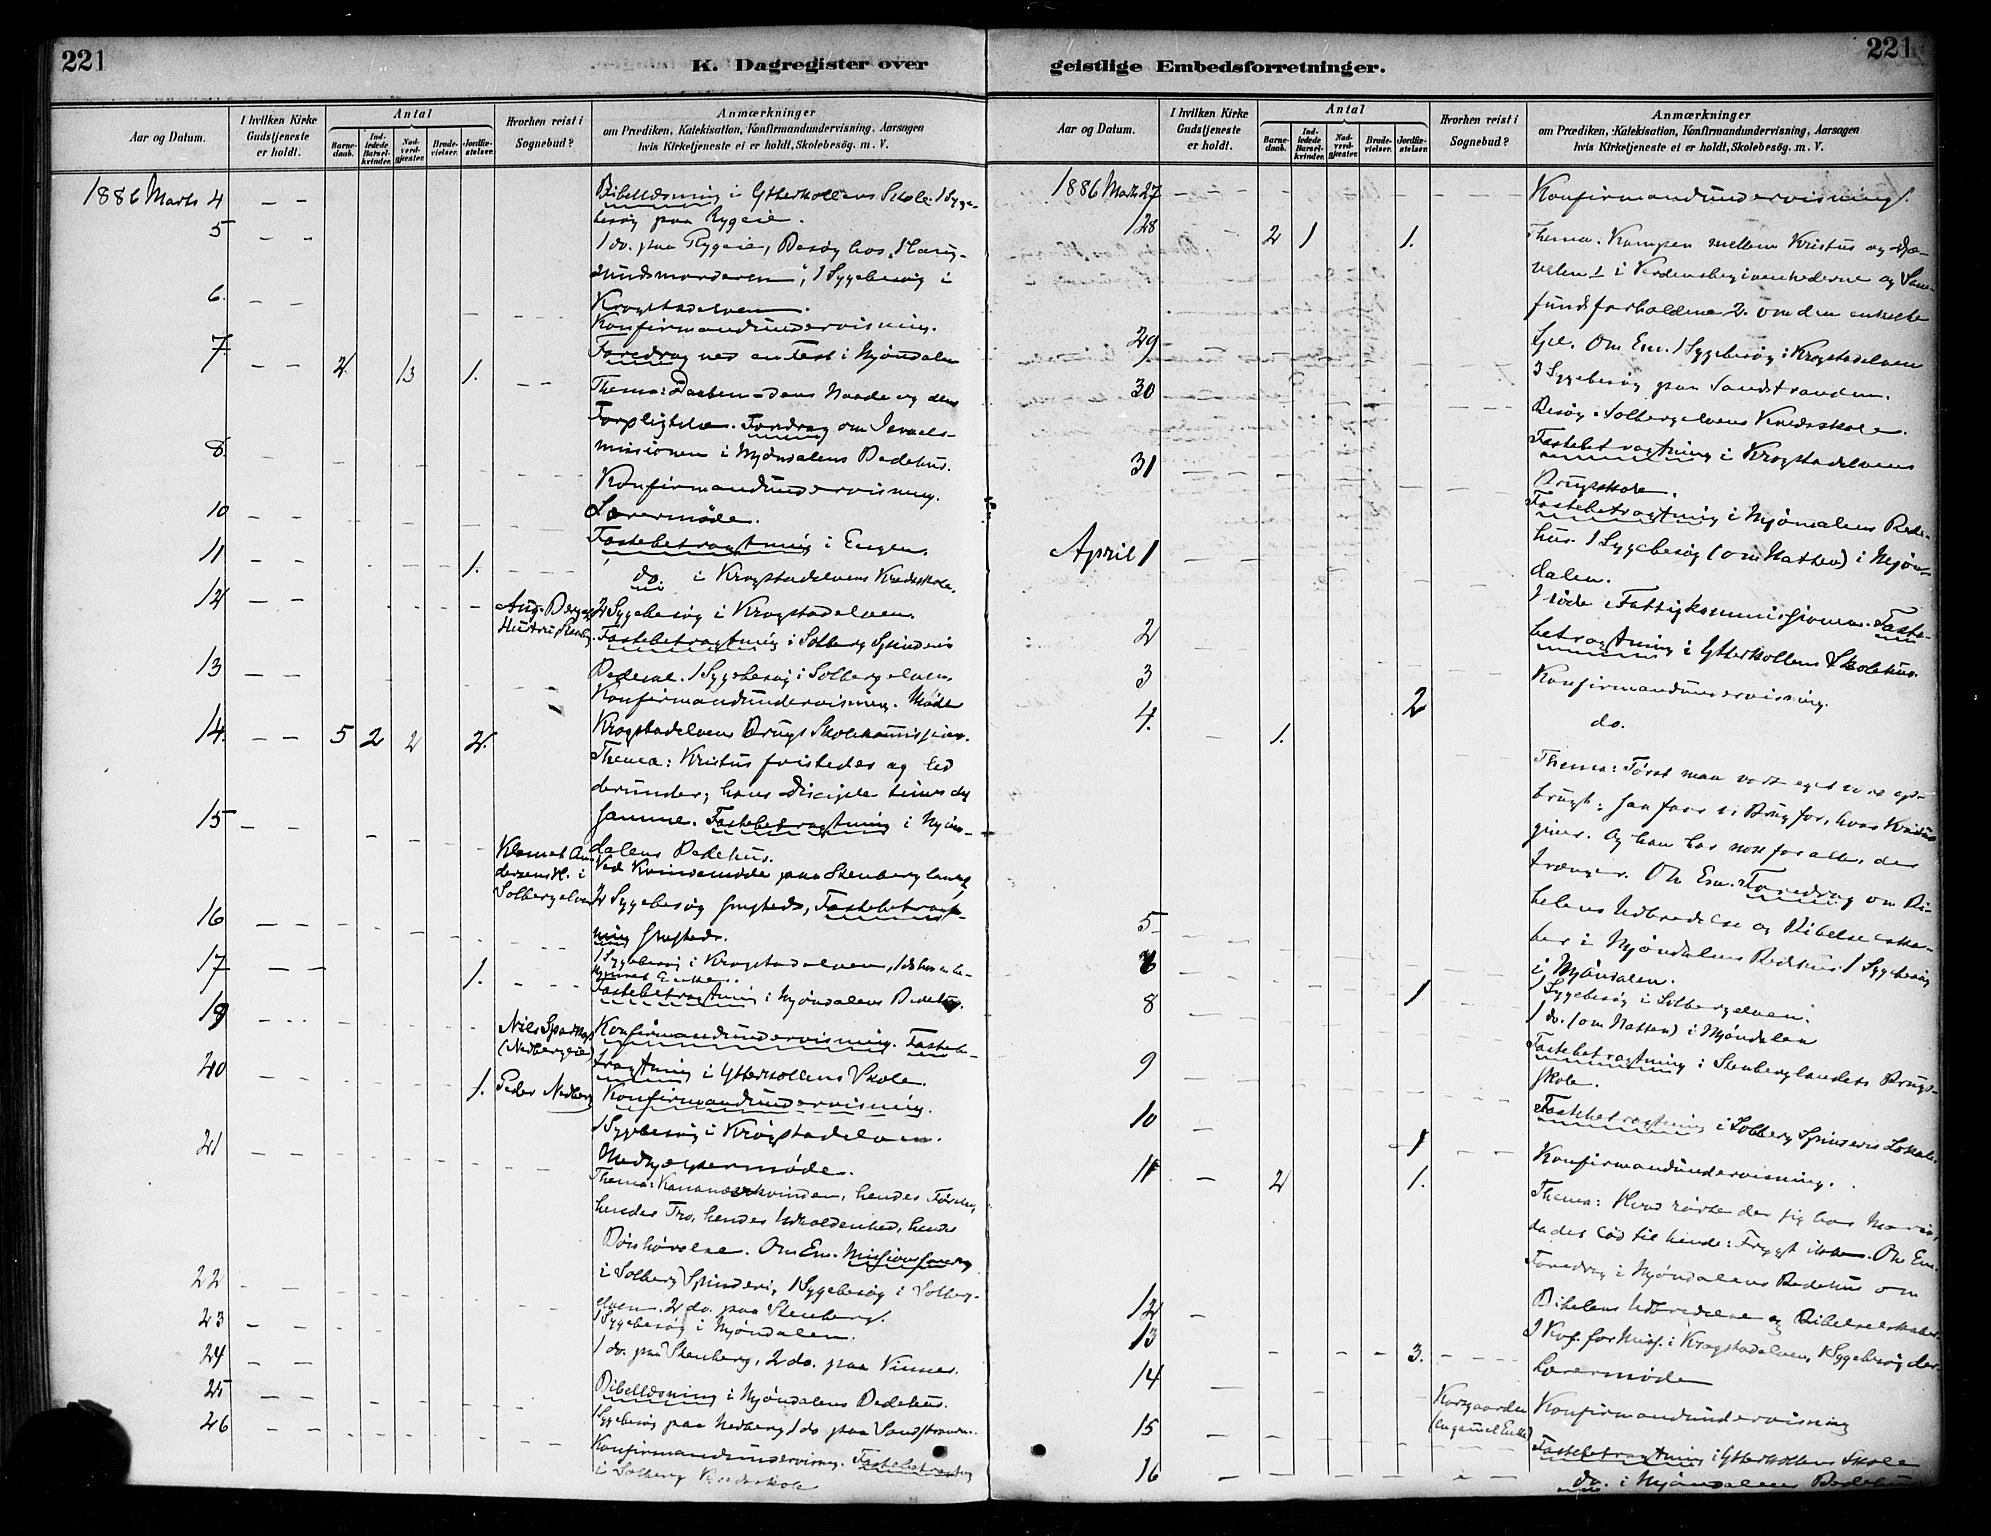 221
K. Dagregister over
Aar og Datum.
I hvilken Kirke Gudstjeneste er holdt.
Antal
Barnedaab.
Indledede Barselkvinder.
Nadverdgjester.
Brudevielser.
Jordfæstelser.
Hvorhen reist i Sognebud?
Anmærkninger
om Prædiken, Katekisation, Konfirmandundervisning, Aarsagen
hvis Kirketjeneste ei er holdt, Skolebesög. m. V.
1886 Marts 4 – – Bibellæsning i Ytterkollens Skole. 1 Syge-
besøg paa Rygeie.
5 – – 1 do. paa Rygeie, Besøg hos
1 Sygebesøg i
6. – – Krogstadelven.
Konfirmandundervisning.
7 – – 2. 13 1. – – Foredrag ved en Fest i Mjøndalen
Thema: Daaben – dens Naade og dens
Forpligtelse. Foredrag om Israels-
8. – – missionen i Mjøndalens Bedehus.
Konfirmandundervisning.
10 – – Lærermøde.
Fastebetragtning i Engen.
11 – – 1. do. i Krogstadelvens Kredsskole.
12 – – Aug. Bergs 2 Sygebesøg i Krogstadelven.
Hustru Fastebetragtning i Solberg Spinderis
13 – – Bedesal. 1 Sygebesøg i Solbergelven
Konfirmandundervisning. Møde
14. – – 5 2 2 2. Krogstadelvens Brugs Skolekommission.
Thema: Kristus fristedes og led
derunder; hans Disciple times det
15 – – samme. Fastebetragtning i Mjøn-
dalens Bedehus.
Klemet An- Ved Kvindemøde paa Stenberg
dersens H. i
Solbergelven 2 Sygebesøg smsteds, Fastebetragt-
16 – – ning smsteds.
17 – – 1. 1 Sygebesøg i Krogstadelven, 1 do hos en be-
Enke.
Fastebetragtning i Mjøndalens Bedehus.
19 – – Nils Konfirmandundervisning. Fastebe-
(Nedbergeie) tragtning i Ytterkollens Skole.
20 – – 1. Peder Nedberg Konfirmandundervisning.
1 Sygebesøg i Krogstadelven.
21 – – Thema: Kananæerkvinden, hendes
hendes Tro, hendes Udholdenhed, hendes
Bønhørelse. Om Em. Missionsforedrag
22 – – i Solberg Spinderi, 1 Sygebesøg i Solberg-
elven. 2 do. paa Stenberg.
23 – – 1 Sygebesøg i Mjøndalen.
24 – – 1 do. paa Stenberg, 2 do. paa Vinnes.
25 – – Bibellæsning i Mjøndalens Bedehus.
26 – – 1 Sygebesøg paa Nedberg 1 do paa Sandstranden.
Konfirmandundervisning. Fastebetragtning
i Solberg Kredsskole
221
geistlige Embedsforretninger.
Aar og Datum.
I hvilken Kirke Gudstjeneste er holdt.
Antal
Barnedaab.
Indledede Barselkvinder.
Nadverdgjester.
Brudevielser.
Jordfæstelser.
Hvorhen reist i Sognebud?
Anmærkninger
om Prædiken, Katekisation, Konfirmandundervisning, Aarsagen
hvis Kirketjeneste ei er holdt, Skolebesög. m. V.
1886 Marts 27 – – Konfirmandundervisning.
28 – 2 1 1. Thema: Kampen mellem Kristus og Djæ-
velen 1 i Verdensbegivenhederne og Sam-
fundsforholdene 2. om den enkelte
29 – Sjel. Om Em. 1 Sygebesøg i Krogstadelven
3 Sygebesøg paa Sandstranden.
30 – – Besøg i Solbergelvens Kredsskole.
Fastebetragtning i Krogstadelvens
31 – – Brugsskole.
Fastebetragtning i Mjøndalens Bede-
hus. 1 Sygebesøg (om Natten) i Mjøn-
April 1 – – dalen.
Møde i Fattigkommissionen. Faste-
2 betragtning i Ytterkollens Skolehus.
3 Konfirmandundervisning.
4. – 1. 2 do.
Thema: Først maa vort eget være op-
brugt; saa faar vi Brug for, hvad Kristus
giver. Og han har nok for alle, der
trænger. Om Em. Foredrag om Bi-
5 – – belens Udbredelse og Bibelselska-
ber i Mjøndalens Bedehus. 1 Sygebesøg
6 – – i Mjøndalen.
1 Sygebesøg i Solbergelven.
8 – – 1 1 do. (om Natten) i Mjøndalen
9 – – Fastebetragtning i Stenberglandets Brugs-
skole.
10 – 1 Fastebetragtning i Solberg Spinderis Lokale.
Konfirmandundervisning.
11 – 2 1. Thema: Hvad rørte der sig hos Maria,
da det lød til hende: Frygt ikke. Om Em.
Foredrag i Mjøndalens Bedehus om
12 – Bibelens Udbredelse og Bibelselskaber
13 – 3. i Krogstadelven, 1 Sygebesøg der
14 – Lærermøde
Korsgaarden Konfirmandundervisning
15 – – (en gammel Enke) Fastebetragtning i Ytterkollens Skole
16 – – do. i Mjøndalens Bedehus